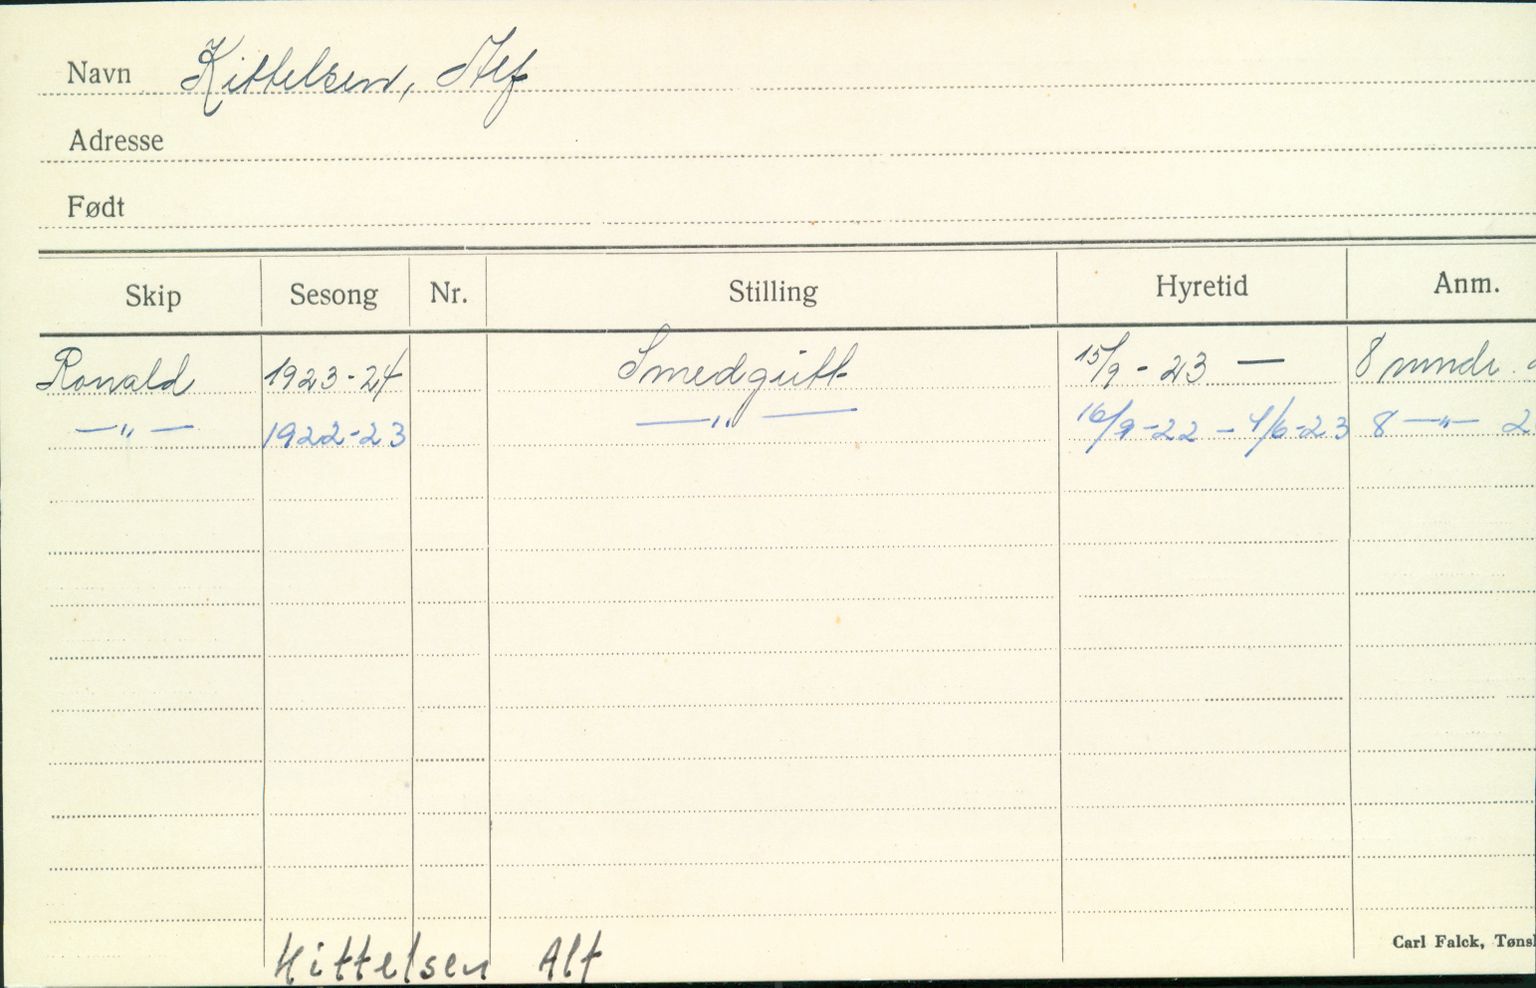 Navn Kittelsen, Alf
Adresse
Født
Skip Sesong Nr. Stilling Hyretid Anm.
Ronald 1923-24 Smedgutt 15/9 - 23 — 8 mndr.
—„— 1922-23 —„— 16/9-22 - 4/6-23 8 —„— 2
Carl Falck, Tøns
Kittelsen Alf